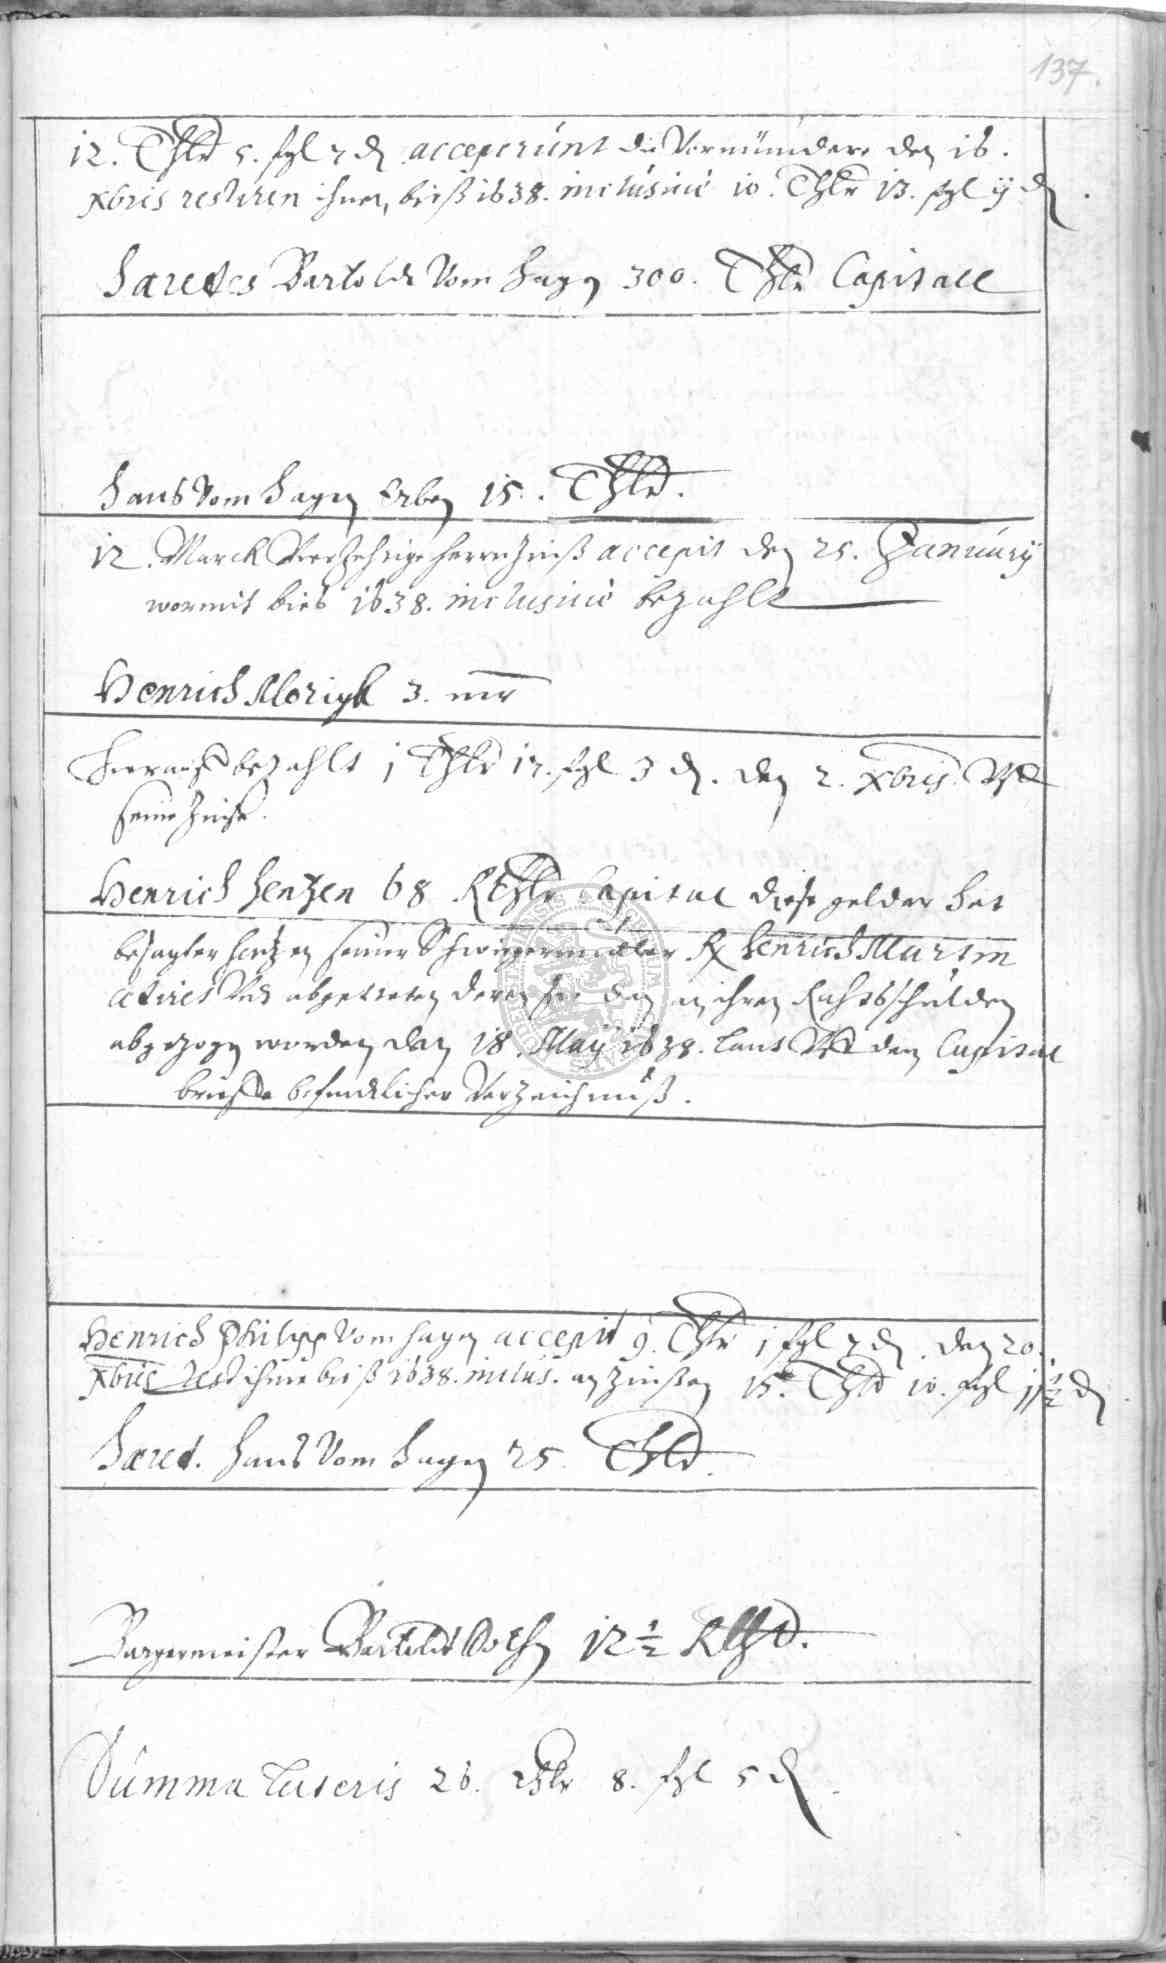 137.
12. Thlr 5. sgl 7 d acceperunt die Vormündere den 16.
xbris restiren ihnen, bieß 1638. inclusiuè 10. Thlr 13. sgl ij d.
Haeredes Bartoldt Vom Hagen 300. Thlr Capitall
Hans Vom Hagen Erben 15. Thlr.
12. Marck Vorjehrige Herrnzinß accepit den 25. Januarij
wormit bies 1638. inclusiuè bezahlt
Henrich Morigk 3. mr
Hierauff bezahlt 1 Thlr 17. sgl 3 d. den 2. xbris. Vff
seine Zinse.
Henrich Hentzen 68 RThlr Capital diese gelder hat
besagter Hentzen seiner Schwigermutter Henrich Martin
abgetreten den an ihren
abgezogen worden den 18. Maij 1638. laut Vff dem Capital
brieffe befindlicher Verzeichnuß.
Henrich Philipp Vom Hagen accepit 9. Thlr 1 sgl 7 d. den 20.
xbris Rest ihme bieß 1638. inclus. an Zinßen 15. Thlr 10. sgl 1½ d
Haered. Hans Vom Hagen 25. Thlr.
Burgermeister Bartoldt 12 ½ Rthlr.
Summa Lateris 26. thlr 8. sgl 5 d